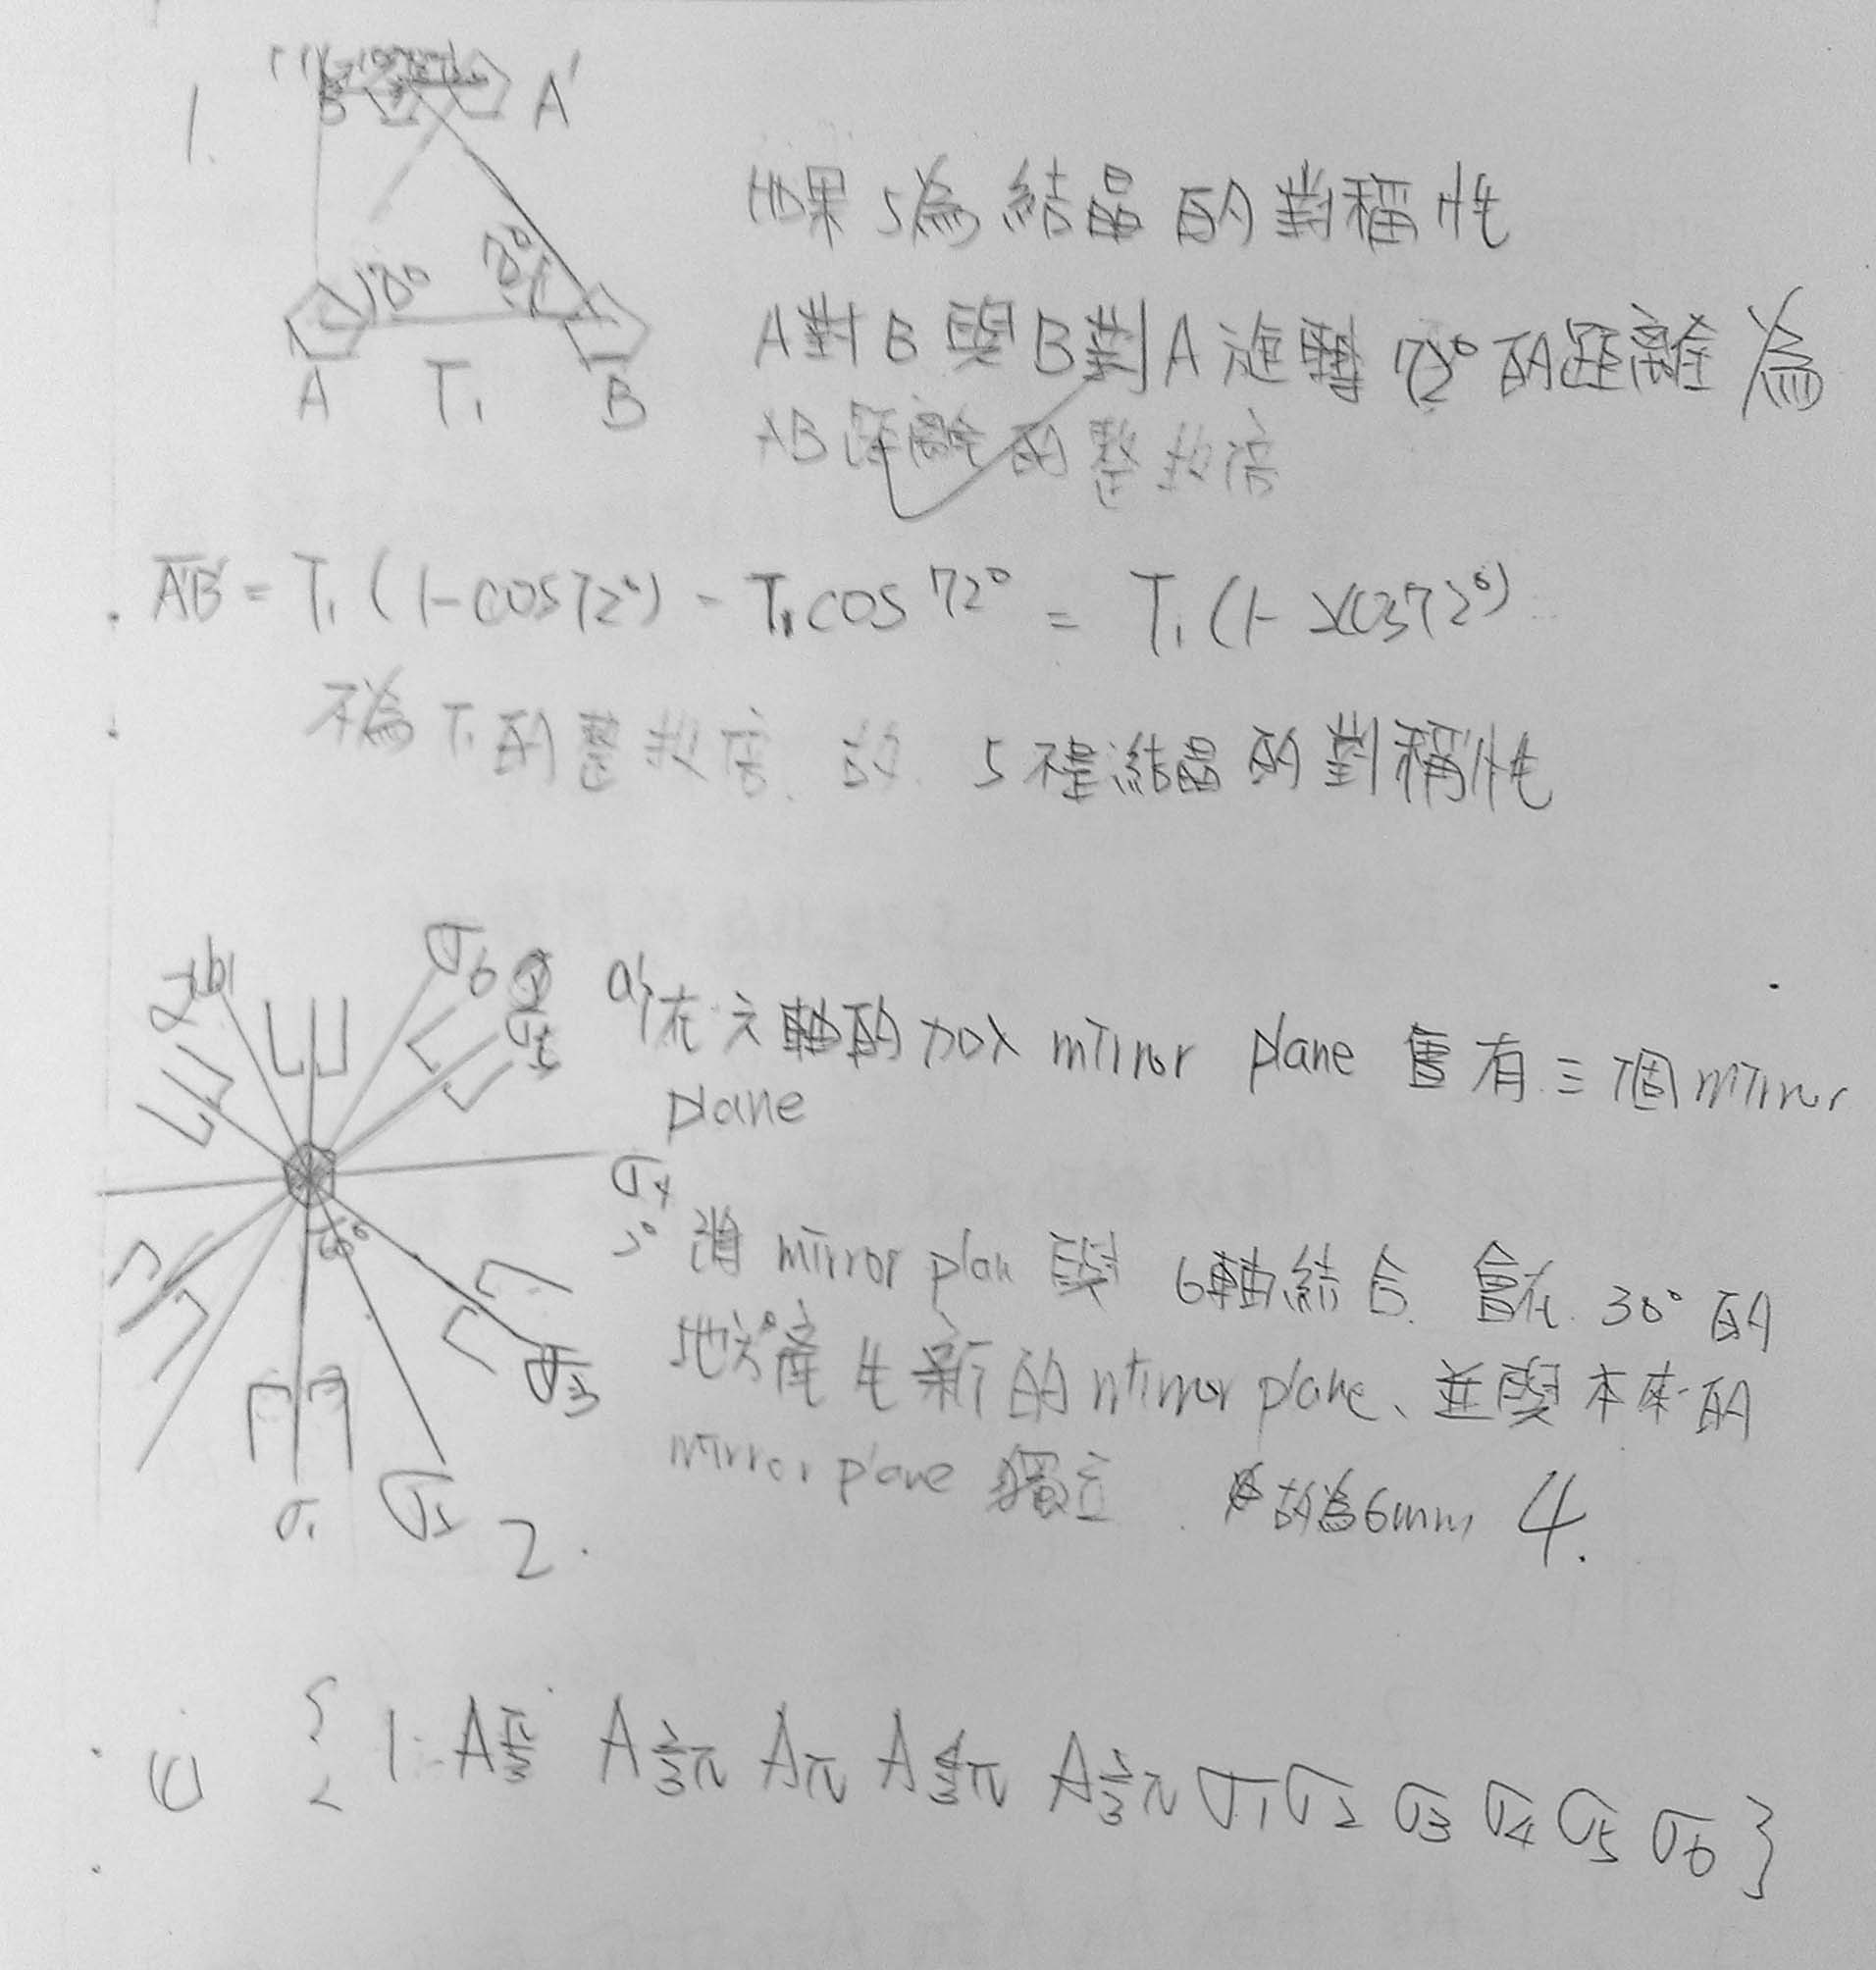 1.
A'
72°
72°
A T₁ B
如果 5為 結晶 的 對稱性
A對B與B對A旋轉 72°的距離為
AB距離的整数倍
A'B' = T₁ (1-cos72°) - T₁cos72° = T₁ (1-2cos72°)
不為 T₁的整数倍. 故. 5不是結晶的對稱性
σ6
σ5
a) 在六軸的加入 mirror plane 會有三個mirror
plane
σ4
60°
將 mirror plan 與 6軸結合. 會在 30°的
地方產生新的mirror plane、並與本來的
mirror plane 獨立. 故為6mm 4.
σ3
σ1 σ2 2.
{ 1 Aπ/3 A2/3π Aπ A4/3π A5/3π σ1 σ2 σ3 σ4 σ5 σ6 }